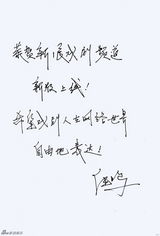 恭贺新浪戏剧频道
新版上线！
希望戏剧人在网络世界
自由地表达！